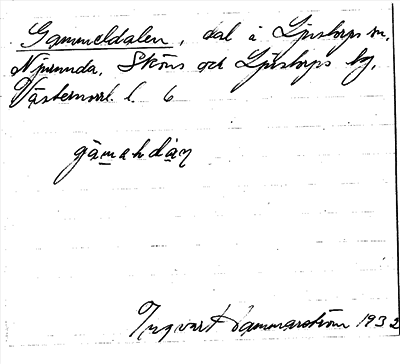 Gammeldalen, dal i Ljustorps sn,
Njurunda, Sköns och Ljustorps tg,
Västernorrl. l. 6
gàmahdàɳ
Ingvar Hammarström 1932